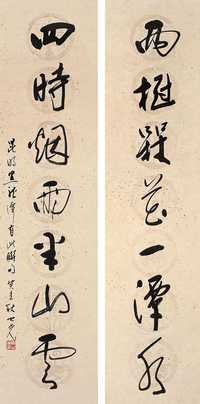 兩樹槑花一潭水
四時烟雨半山雲
昆明黑龍潭有此聯句